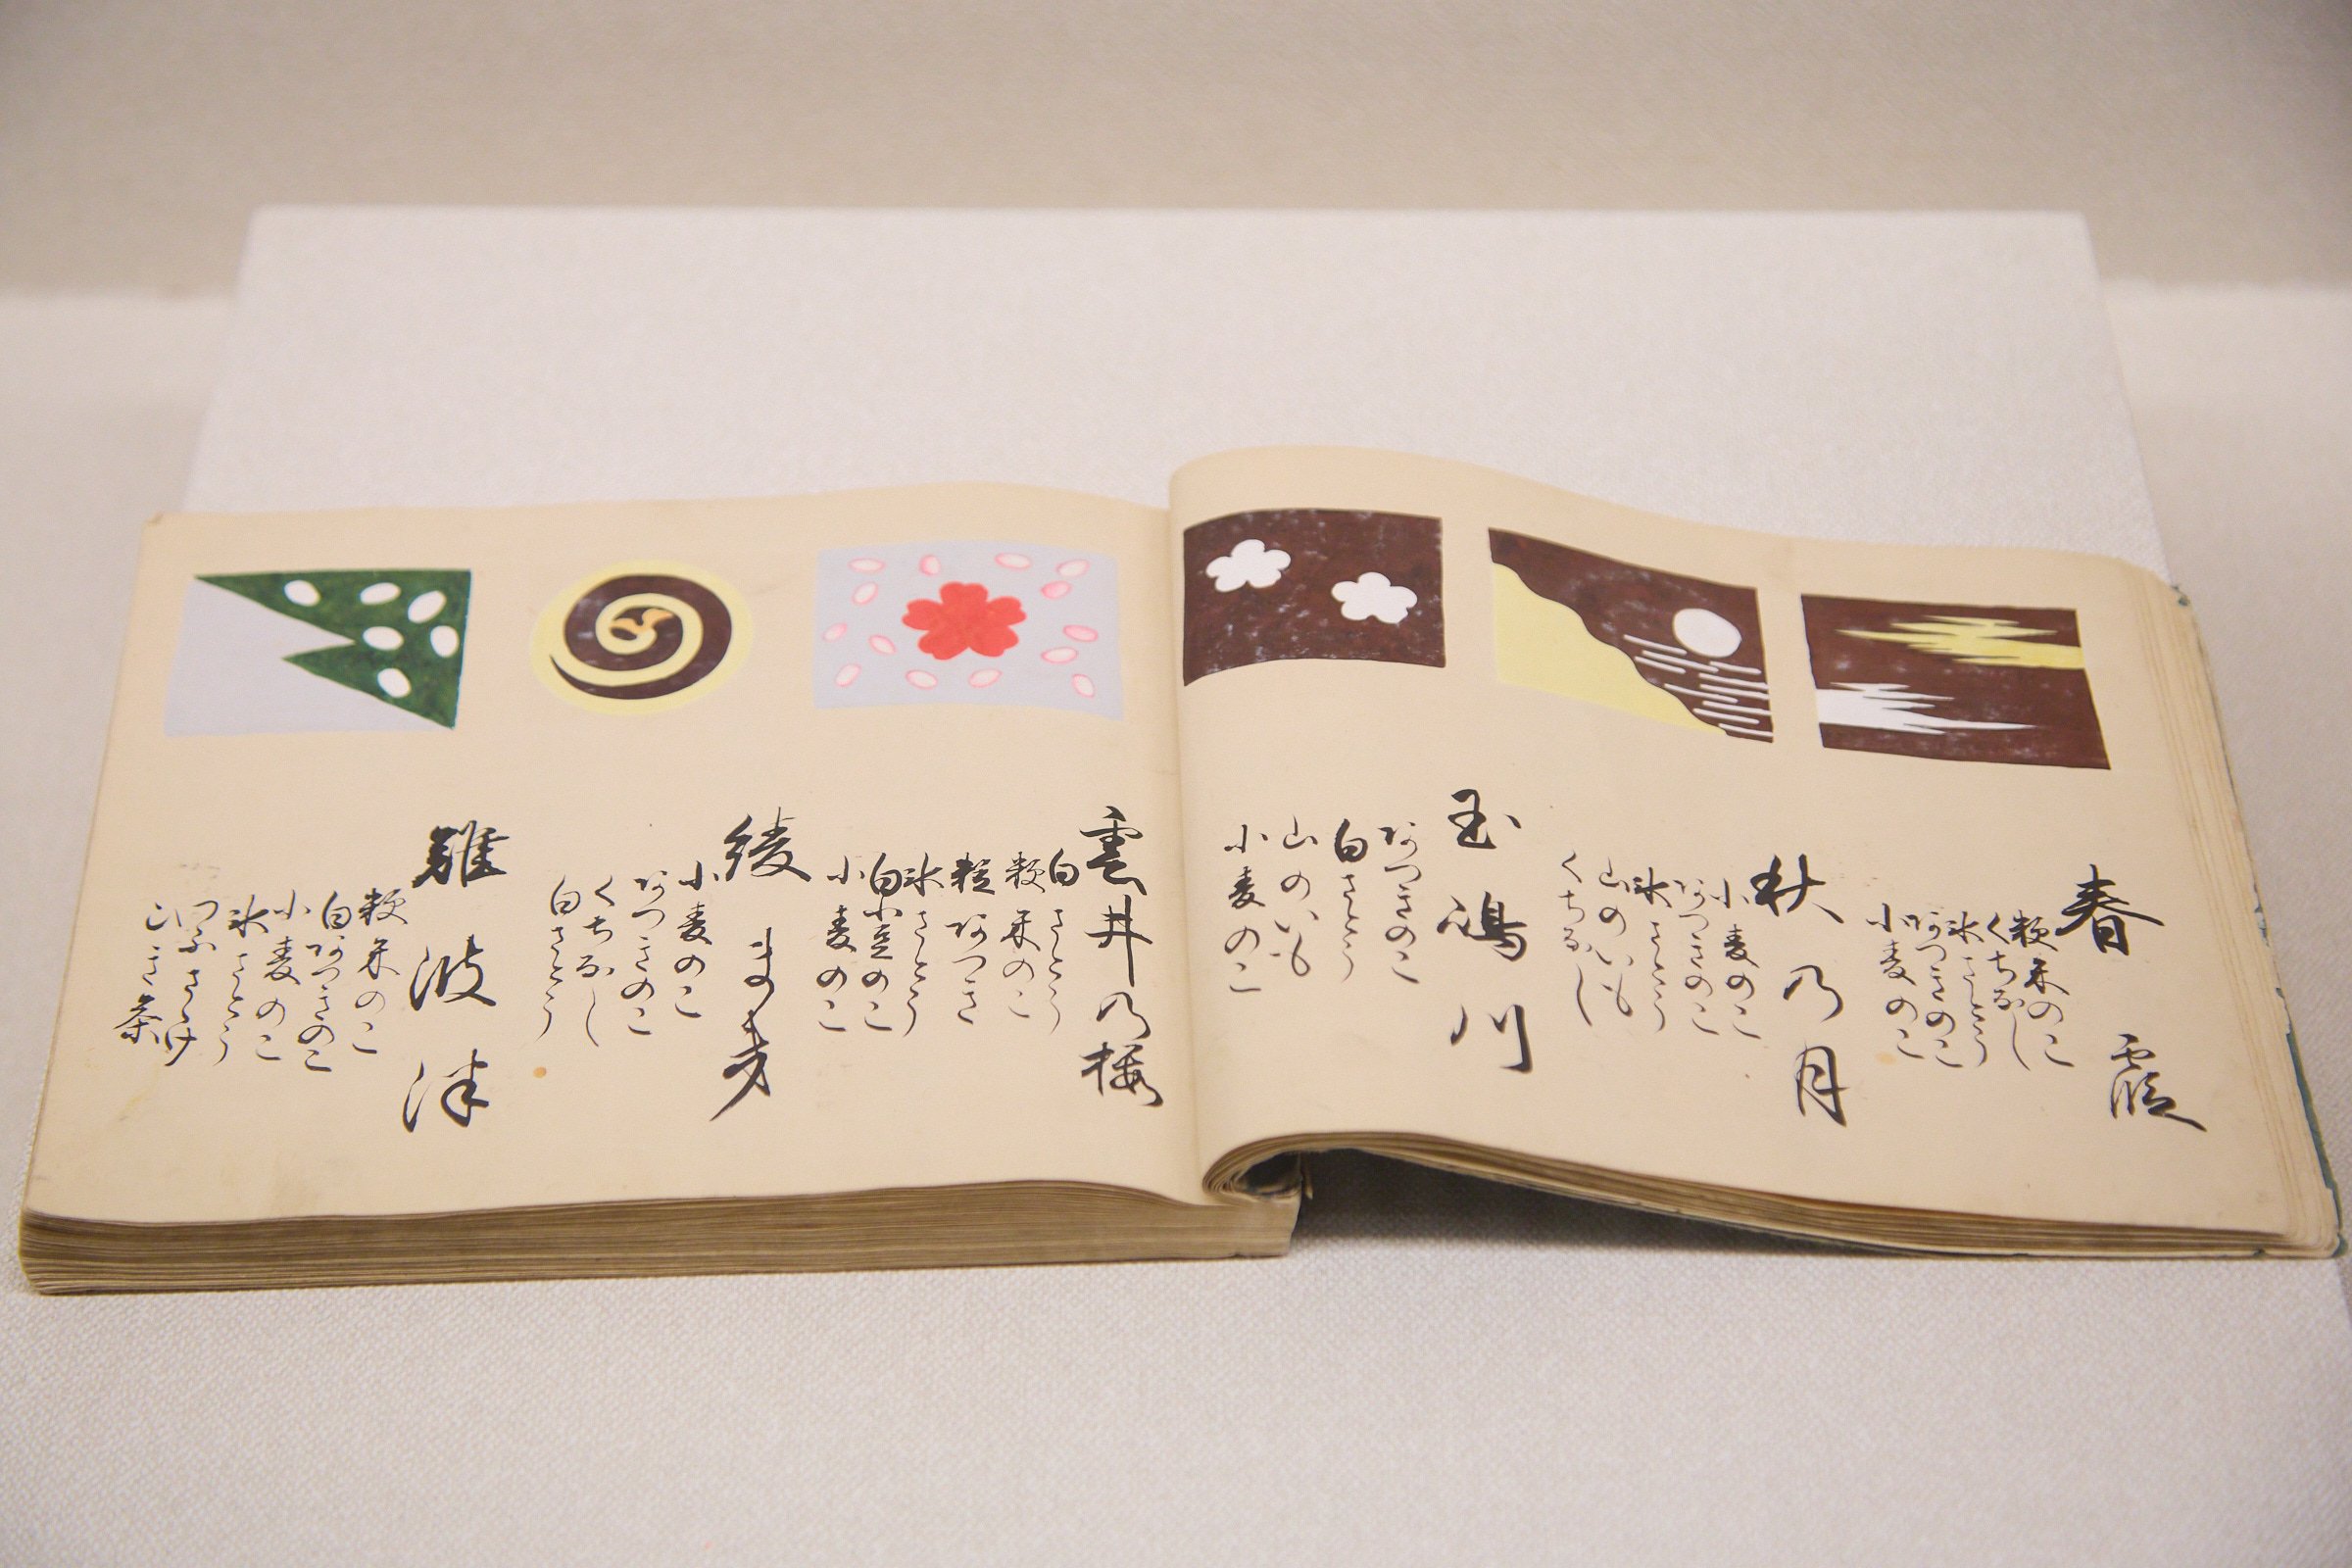 春霞
粳米のこ
くちなし
氷さとう
あつきのこ
小麦のこ
秋乃月
小麦のこ
あつきのこ
氷さとう
山のいも
くちなし
玉嶋川
あつきのこ
白さとう
山のいも
小麦のこ
雲井乃桜
白さとう
粳米のこ
粒あつき
氷さとう
白小豆のこ
小麦のこ
綾まき
小麦のこ
あつきのこ
くちなし
白さとう
難波津
粳米のこ
白あつきのこ
小麦のこ
氷さとう
つふさゝけ
ひき茶